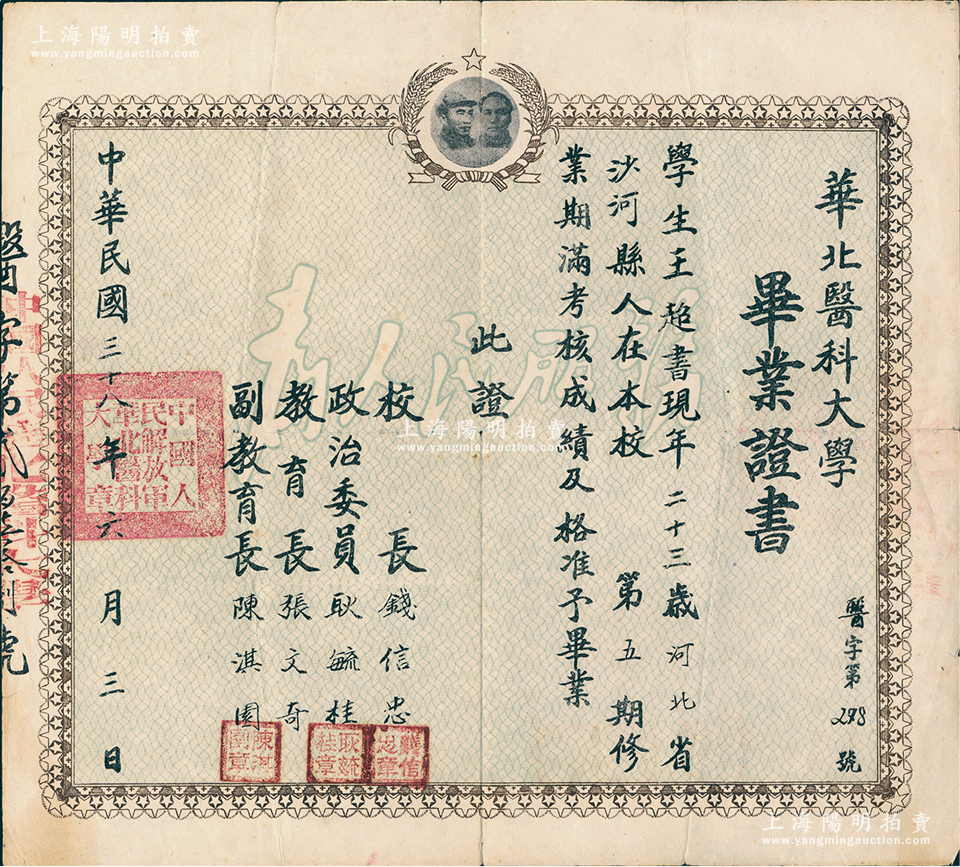 華北醫科大學
畢業證書
醫字第298號
學生王超書現年二十三歲河北省
沙河縣人在本校第五期修
業期滿考核成績及格准予畢業
此證
校長錢信忠
政治委員耿毓桂
教育長張文奇
副教育長陳淇園
中華民國三十八年六月三日
中國人
民解放軍
華北醫科
大學章
錢信
忠章
耿毓
桂章
陳淇
園章
為人民服務
醫字第貳
號
上海陽明拍賣
www.yangmingauction.com
上海陽明拍賣
www.yangmingauction.com
上海陽明拍賣
www.yangmingauction.com